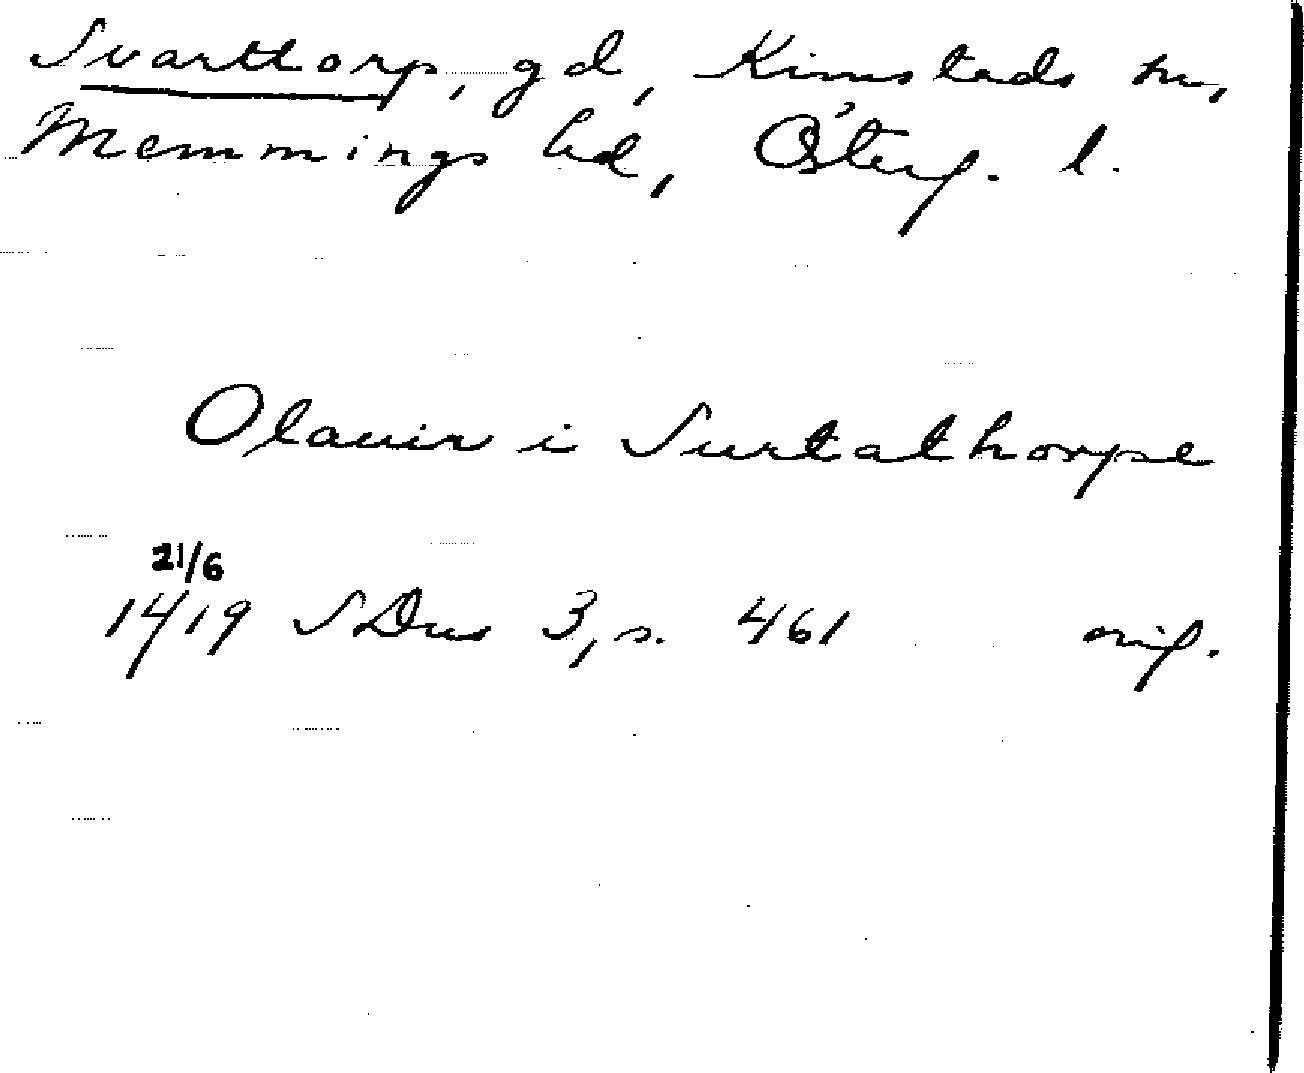 Svarttorp, gd, Kimstads sn,
Memmings hd, Österg. l.
Olauin i Surtathorpe
21/6
1419 SDns 3, s. 461 orig.